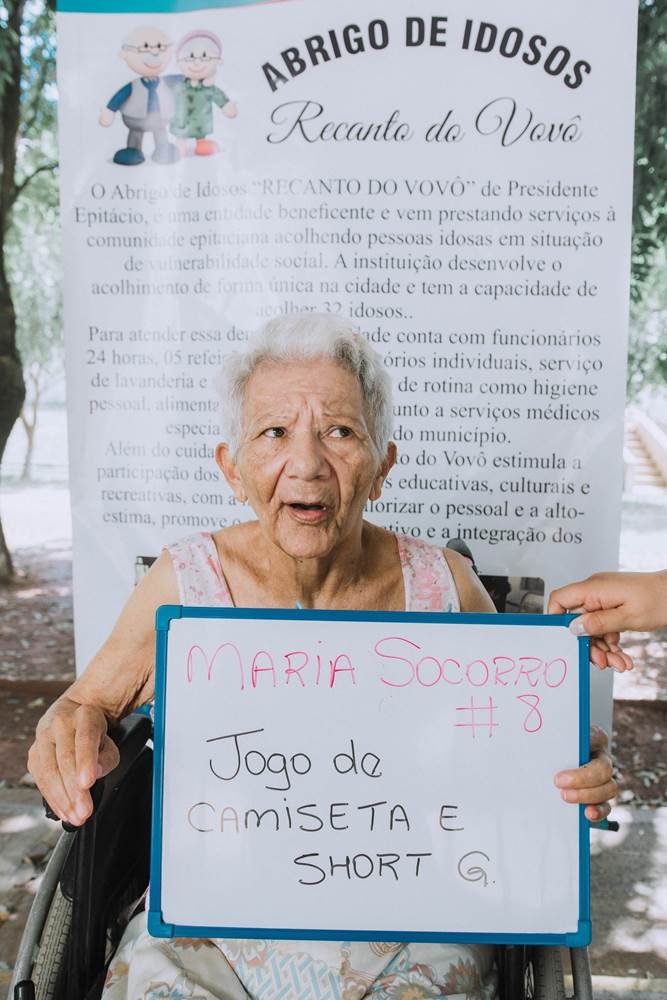 ABRIGO DE IDOSOS
Recanto do Vovô
O Abrigo de Idosos “RECANTO DO VOVÔ” de Presidente
Epitácio, é uma entidade beneficente e vem prestando serviços à
comunidade epitaciana acolhendo pessoas idosas em situação
de vulnerabilidade social. A instituição desenvolve o
acolhimento de forma única na cidade e tem a capacidade de
acolher 32 idosos..
Para atender essa dade conta com funcionários
24 horas, 05 órios individuais, serviço
de lavanderia e de rotina como higiene
pessoal, unto a serviços médicos
do município.
Além do do Vovô estimula a
participação dos s educativas, culturais e
recreativas, com a lorizar o pessoal e a alto-
estima, promove tivo e a integração dos
MARIA SOCORRO
#8
Jogo de
CAMISETA E
SHORT G.